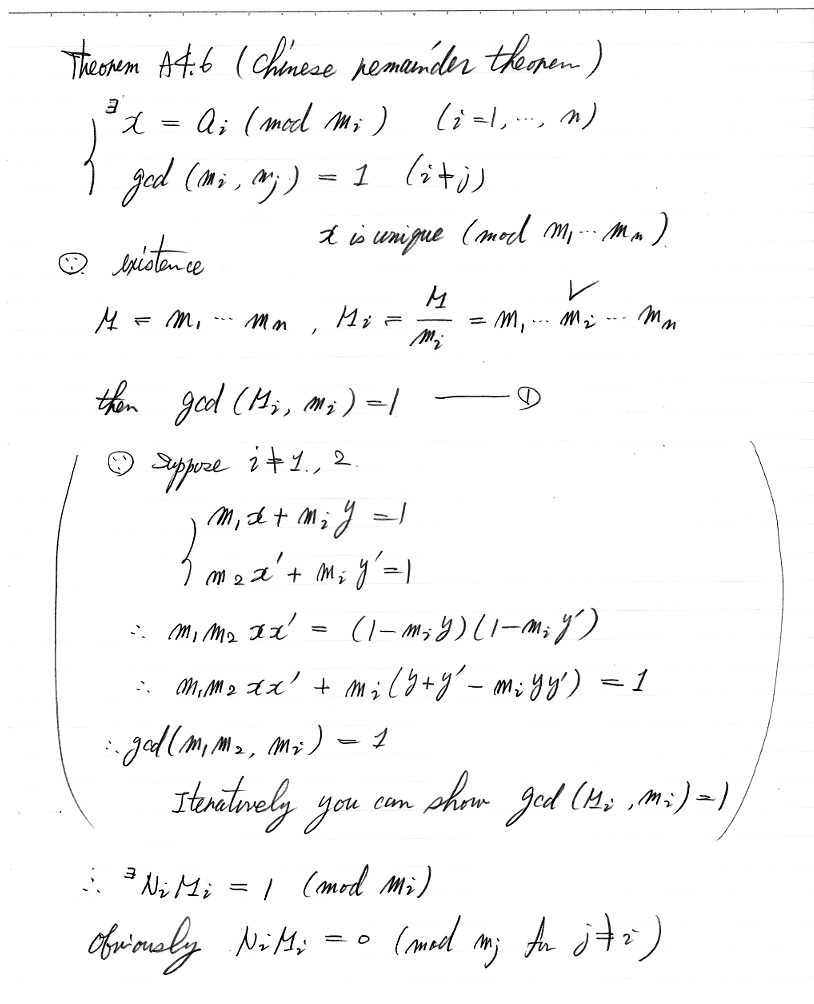 Theorem A4.6 (Chinese remainder theorem)
∃x = a_i (mod m_i) (i=1, ..., n)
gcd (m_i, m_j) = 1 (i≠j)
x is unique (mod m_1 ... m_n)
∵ existence
M = m_1 ... m_n , M_i = M/m_i = m_1 ... m̌_i ... m_n
then gcd (M_i, m_i) = 1 —— ①
∵ Suppose i ≠ 1., 2.
m_1 x + m_i y = 1
m_2 x' + m_i y' = 1
∴ m_1 m_2 xx' = (1-m_i y)(1-m_i y')
∴ m_1 m_2 xx' + m_i (y+y' - m_i yy') = 1
∴ gcd(m_1 m_2, m_i) = 1
Iteratively you can show gcd (M_i, m_i) = 1
∴ ∃N_i M_i = 1 (mod m_i)
Obviously N_i M_i = 0 (mod m_j for j≠i)